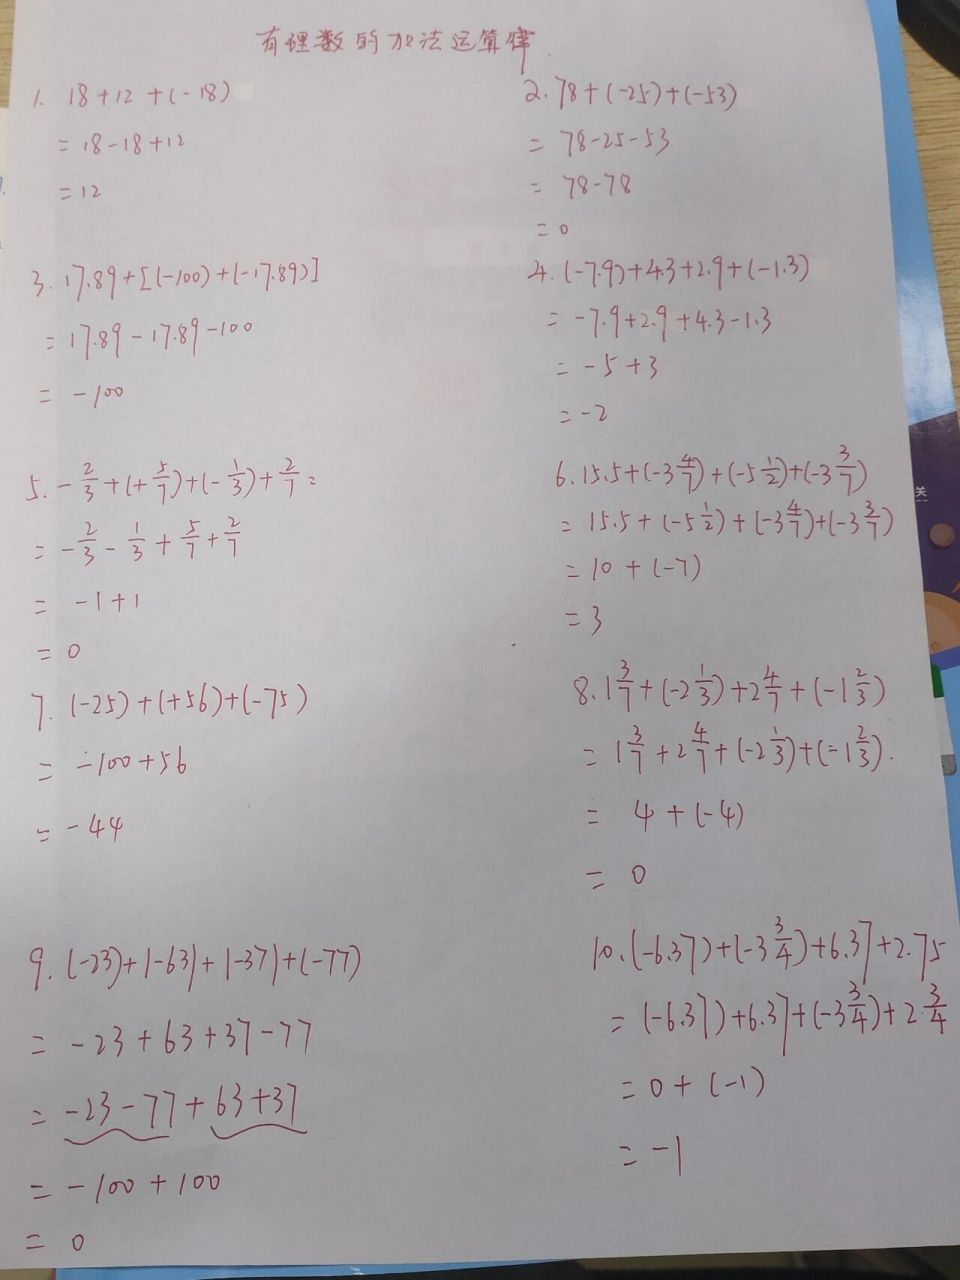 有理数的加法运算律
1. 18+12+(-18)
= 18-18+12
= 12
2. 78+(-25)+(-53)
= 78-25-53
= 78-78
= 0
3. 17.89+[(-100)+(-17.89)]
= 17.89-17.89-100
= -100
4. (-7.9)+4.3+2.9+(-1.3)
= -7.9+2.9+4.3-1.3
= -5+3
= -2
5. -2/3+(+5/7)+(-1/3)+2/7=
= -2/3-1/3+5/7+2/7
= -1+1
= 0
6. 15.5+(-3 4/7)+(-5 1/2)+(-3 3/7)
= 15.5+(-5 1/2)+(-3 4/7)+(-3 3/7)
= 10+(-7)
= 3
7. (-25)+(+56)+(-75)
= -100+56
= -44
8. 1 3/7+(-2 1/3)+2 4/7+(-1 2/3)
= 1 3/7+2 4/7+(-2 1/3)+(-1 2/3).
= 4+(-4)
= 0
9. (-23)+|-63|+|-37|+(-77)
= -23+63+37-77
= -23-77+63+37
= -100+100
= 0
10. (-6.37)+(-3 3/4)+6.37+2.75
= (-6.37)+6.37+(-3 3/4)+2 3/4
= 0+(-1)
= -1
关